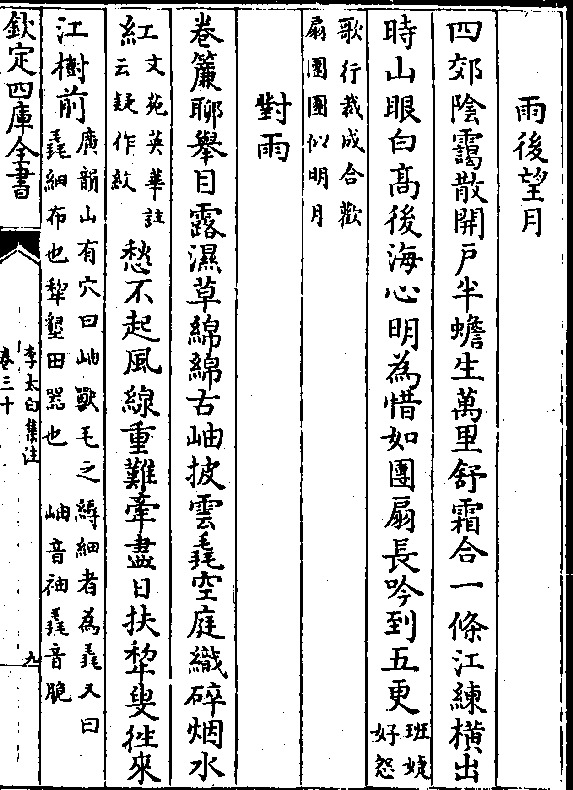 雨後望月
四郊陰靄散開戸半蟾生萬里舒霜合一條江練橫出
時山眼白髙後海心明為惜如團扇長吟到五更班婕妤怨
歌行裁成合歡扇團團似明月
對雨
卷簾聊舉目露濕草綿綿古岫披雲毳空庭織碎烟水
紅文苑英華註云疑作紋愁不起風線重難牽盡日扶犂叟徃來
江樹前廣韻山有穴曰岫獸毛之縟細者為毳又曰毳細布也犂墾田器也 岫音袖毳音脆
欽定四庫全書
李太白集注
卷三十
九